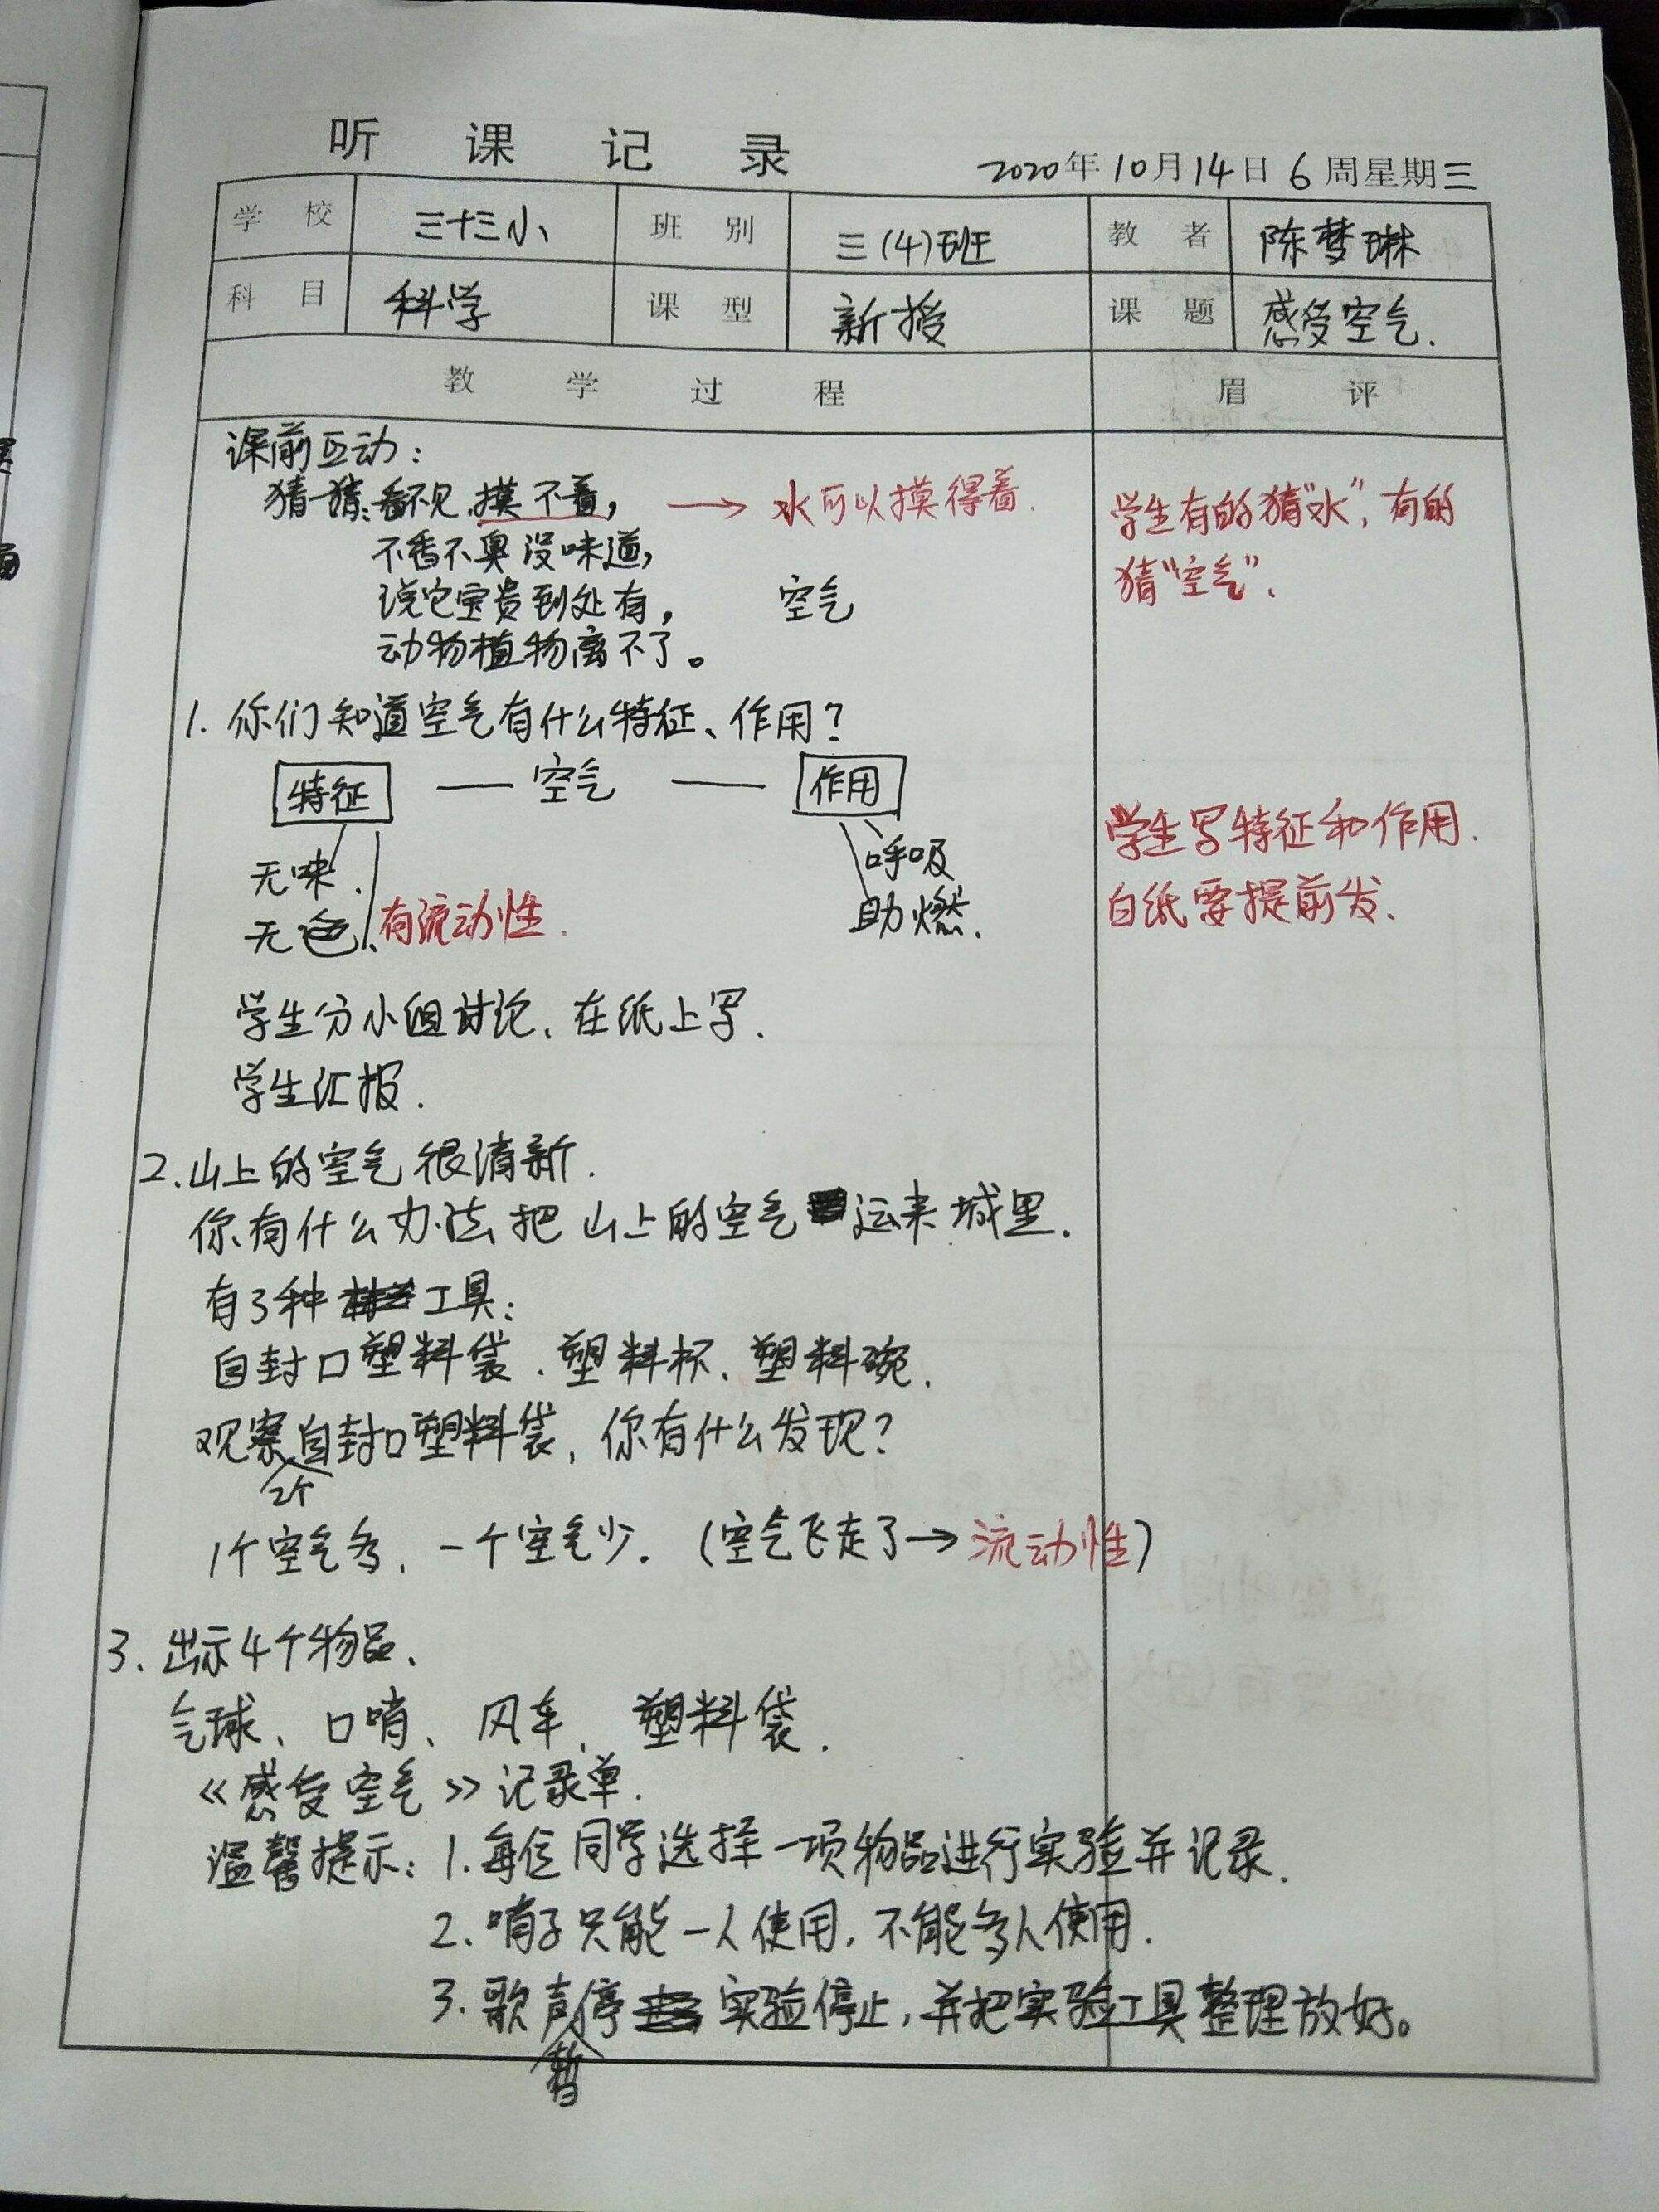 听课记录
2020年10月14日 6周星期三
学校 三十三小 班别 三(4)班 教者 陈梦琳
科目 科学 课型 新授 课题 感受空气.
教学过程 眉评
课前互动:
猜一猜:看不见.摸不着, → 水可以摸得着.
不香不臭没味道,
说它宝贵到处有, 空气
动物植物离不了。
学生有的猜“水”,有的
猜“空气”.
1.你们知道空气有什么特征、作用?
特征 — 空气 — 作用
无味. 呼吸
无色. 有流动性. 助燃.
学生写特征和作用.
白纸要提前发.
学生分小组讨论,在纸上写.
学生汇报.
2.山上的空气很清新.
你有什么办法把山上的空气运来城里.
有3种工具:
自封口塑料袋.塑料杯.塑料碗.
观察2个自封口塑料袋,你有什么发现?
1个空气多,一个空气少.(空气飞走了→流动性)
3.出示4个物品.
气球、口哨、风车、塑料袋.
《感受空气》记录单.
温馨提示:1.每位同学选择一项物品进行实验并记录.
2.哨子只能一人使用,不能多人使用.
3.歌声暂停实验停止,并把实验工具整理放好。